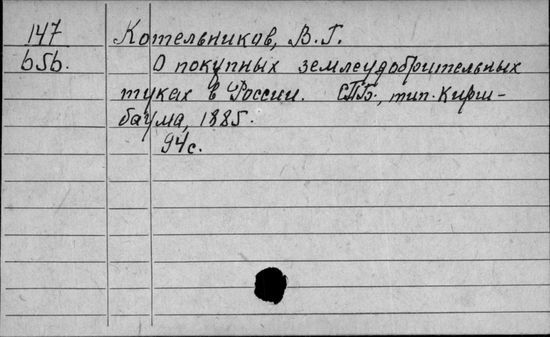 147 Котельников, В.Г.
b5b. О покупных землеудобрительных
туках в России. СПБ., тип. Кирш-
баума, 1885.
94с.